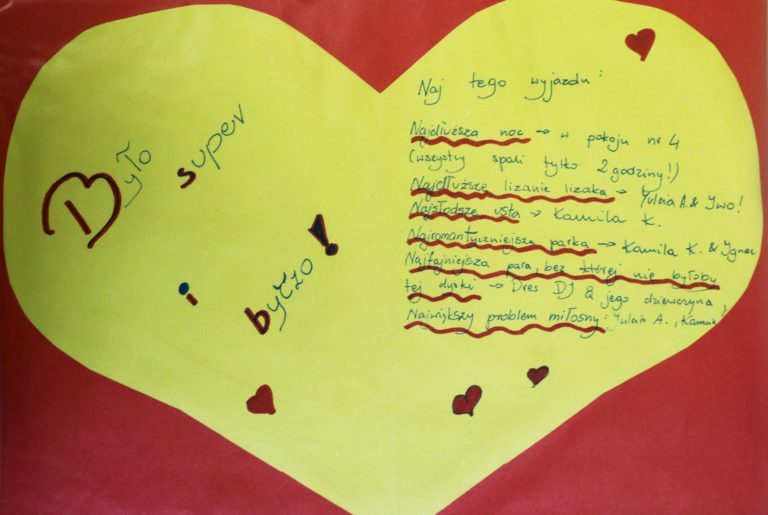 Było super
i byczo!
Naj tego wyjazdu:
Najdłuższa noc → w pokoju nr 4
(wszyscy spali tylko 2 godziny!)
Najdłuższe lizanie lizaka → Yulcia A. & Iwo!
Najsłodsze usta → Kamila K.
Najromantyczniejsza parka → Kamila K. & Ignac
Najfajniejsza para, bez której nie byłoby
tej dyski → Dres DJ & jego dziewczyna
Największy problem miłosny: Yulcia A., Kamila